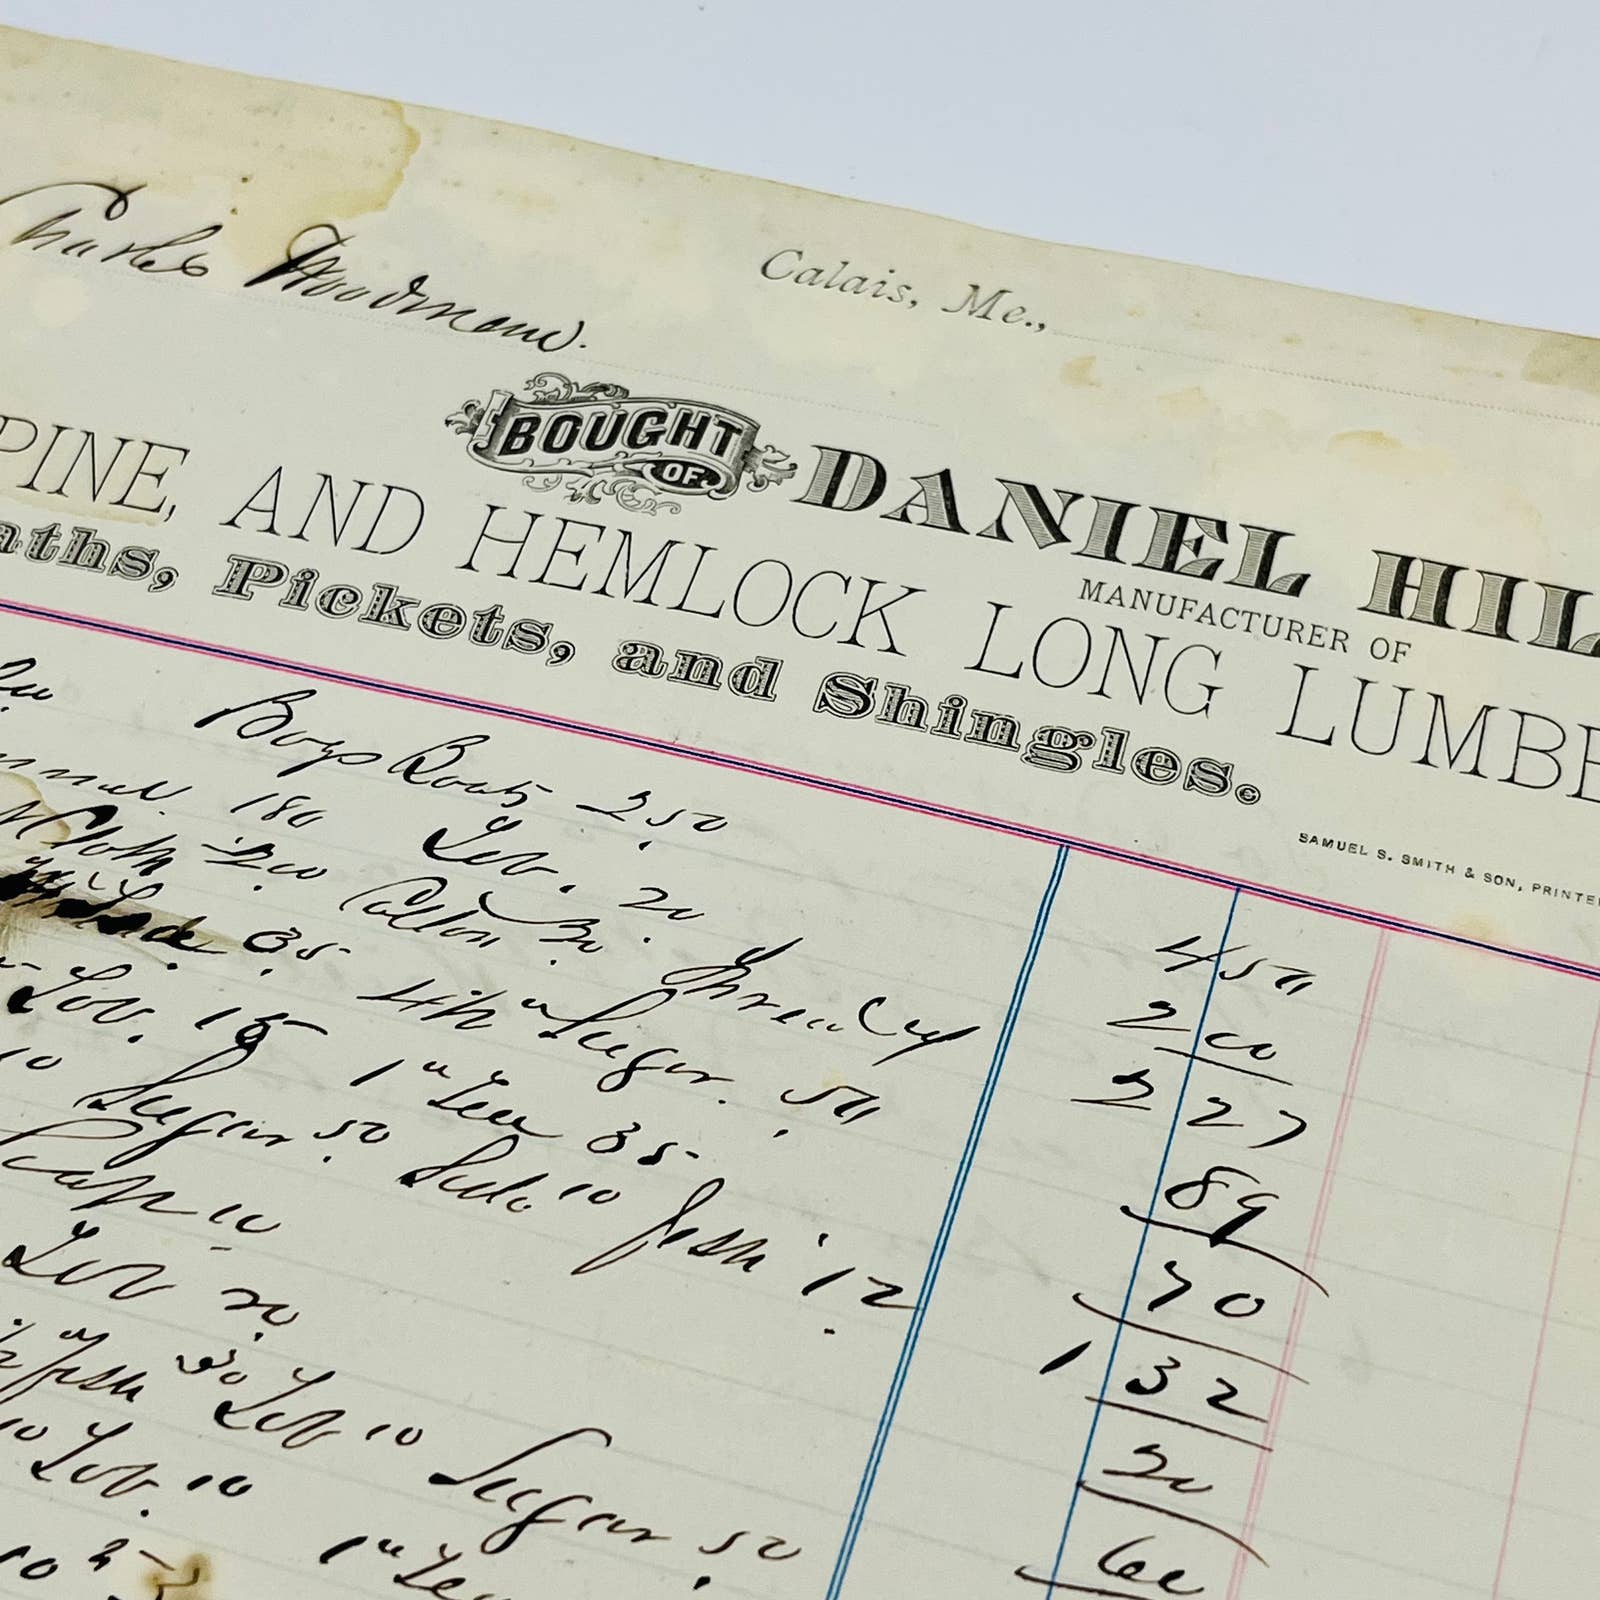 Charles Woodman.
Calais, Me.,
BOUGHT OF DANIEL HIL
MANUFACTURER OF
PINE, AND HEMLOCK LONG LUMBE
aths, Pickets, and Shingles.
SAMUEL S. SMITH & SON, PRINTE
Boys Boots 250
180 Tob. 20 4 50
Cloth Cotton Thread 2 00
35 4 lb " Sugar. 50 2 27
Tob. 15 1 " Tea 35 89
10 Sugar 50 Soda 10 fish 12 70
Soap 10 1 32
Tob 20 20
fish 30 Tob 10 Sugar 50 60
10 Tob. 10
10 1 " Tea